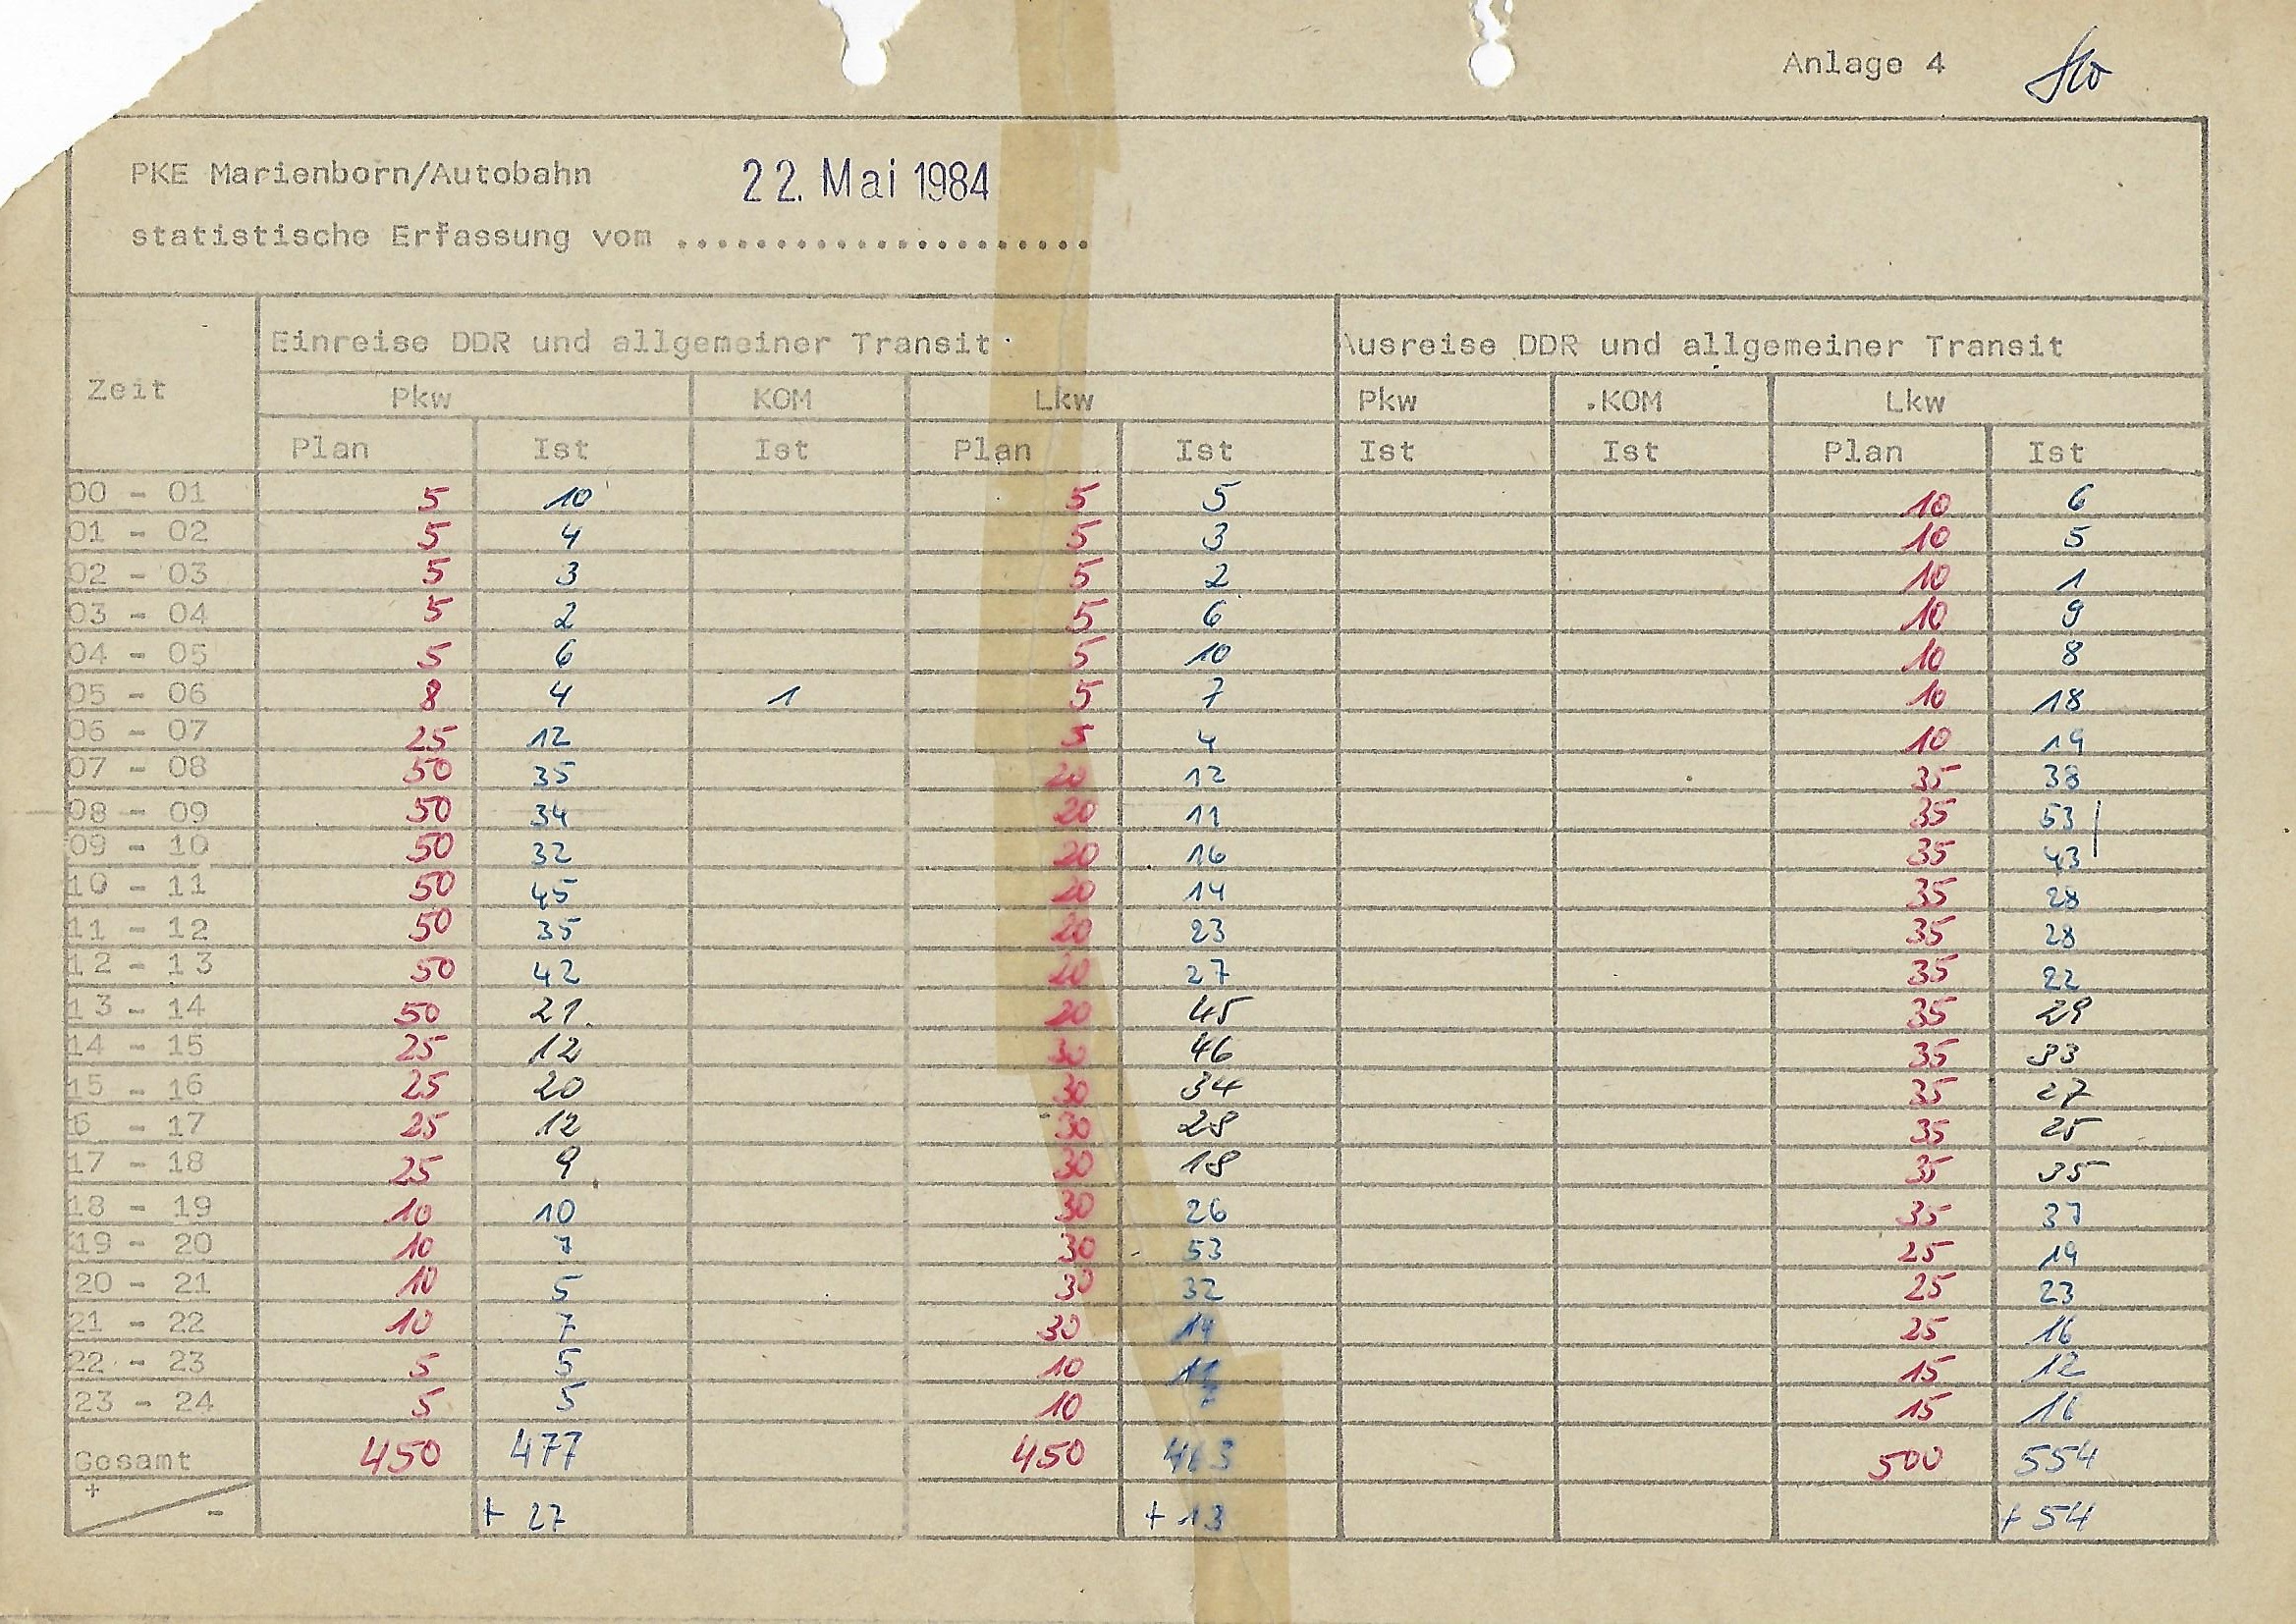 Anlage 4
PKE Marienborn/Autobahn 22. Mai 1984
statistische Erfassung vom .....................
Zeit
Einreise DDR und allgemeiner Transit Ausreise DDR und allgemeiner Transit
Pkw KOM Lkw Pkw KOM Lkw
Plan Ist Ist Plan Ist Ist Ist Plan Ist
00 - 01 5 10 5 5 10 6
01 - 02 5 4 5 3 10 5
02 - 03 5 3 5 2 10 1
03 - 04 5 2 5 6 10 9
04 - 05 5 6 5 10 10 8
05 - 06 8 4 1 5 7 10 18
06 - 07 25 12 5 4 10 19
07 - 08 50 35 20 12 35 38
08 - 09 50 34 20 11 35 53
09 - 10 50 32 20 16 35 43
10 - 11 50 45 20 14 35 28
11 - 12 50 35 20 23 35 28
12 - 13 50 42 20 27 35 22
13 - 14 50 21 20 45 35 29
14 - 15 25 12 30 46 35 33
15 - 16 25 20 30 34 35 27
6 - 17 25 12 30 28 35 25
17 - 18 25 9 30 18 35 35
18 - 19 10 10 30 26 35 37
19 - 20 10 7 30 53 25 19
20 - 21 10 5 30 32 25 23
21 - 22 10 7 30 14 25 16
22 - 23 5 5 10 15 12
23 - 24 5 5 10 15 16
Gesamt 450 477 450 463 500 554
+ - + 27 + 13 + 54